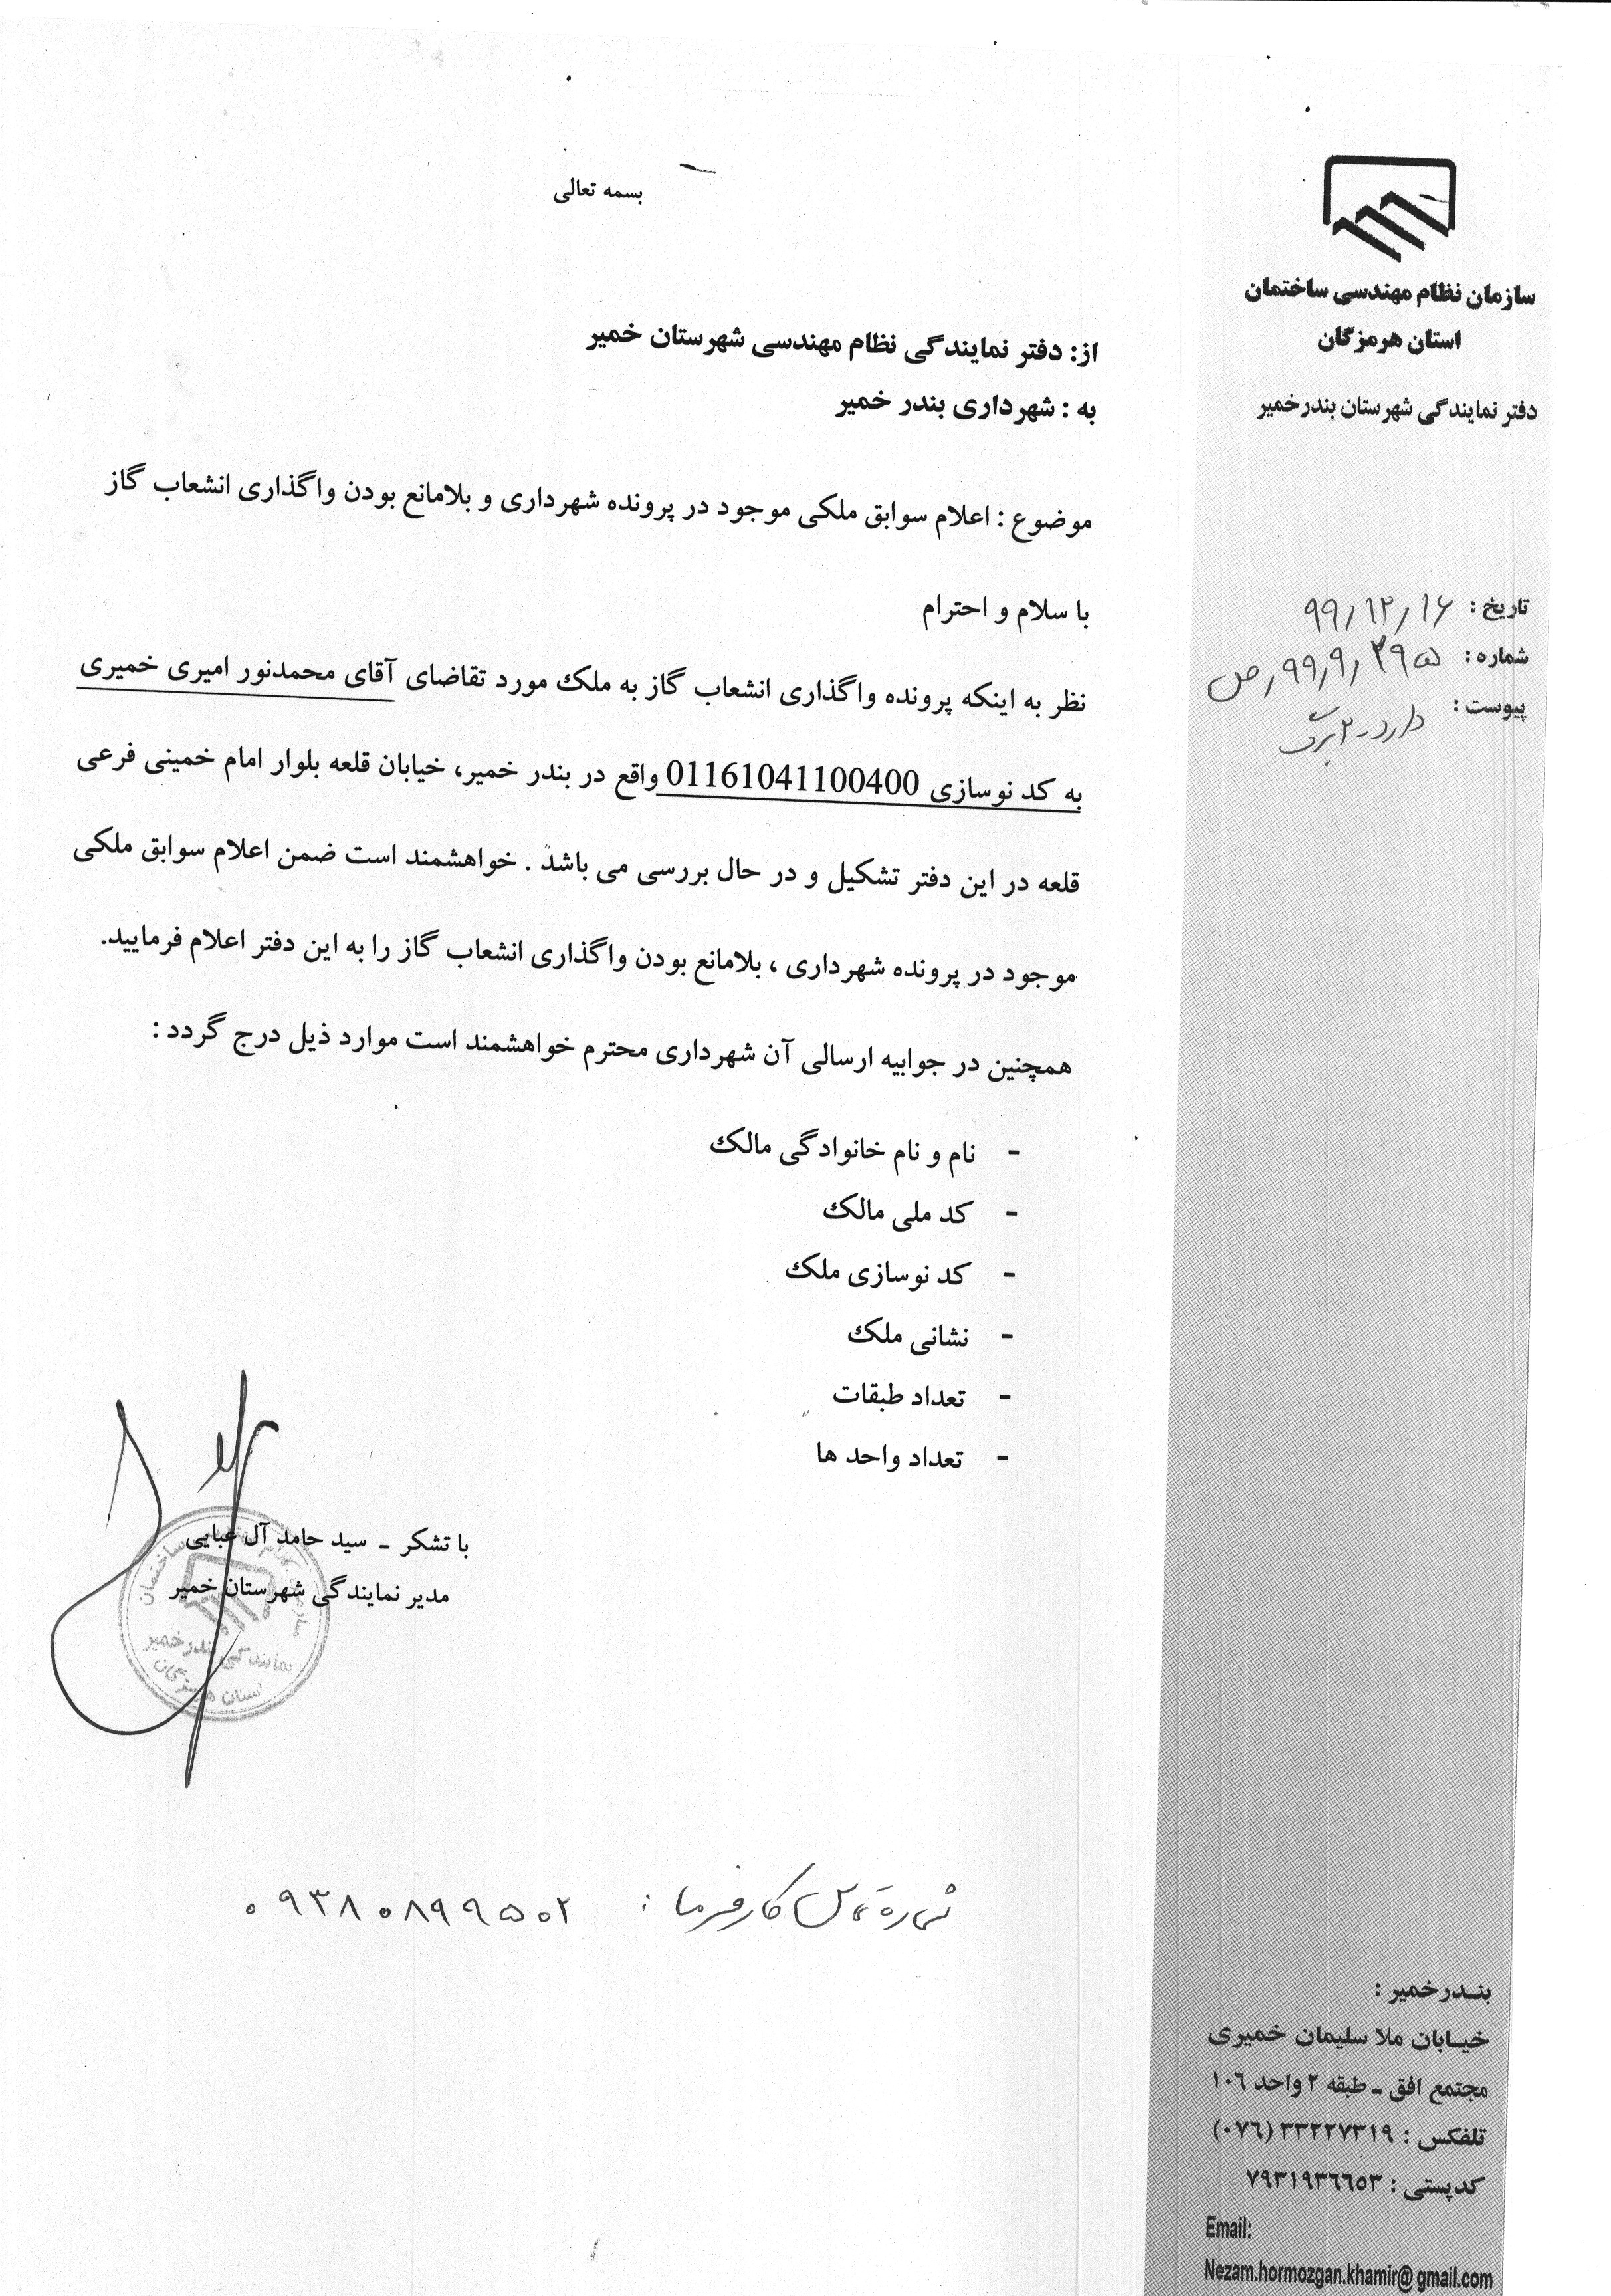 بسمه تعالی
سازمان نظام مهندسی ساختمان
استان هرمزگان
دفتر نمایندگی شهرستان بندرخمیر
تاریخ : ۹۹/۱۲/۱۶
شماره : ۹۹/۹/۳۹۵/ص
پیوست : دارد-۲برگ
از: دفتر نمایندگی نظام مهندسی شهرستان خمیر
به : شهرداری بندر خمیر
موضوع : اعلام سوابق ملکی موجود در پرونده شهرداری و بلامانع بودن واگذاری انشعاب گاز
با سلام و احترام
نظر به اینکه پرونده واگذاری انشعاب گاز به ملک مورد تقاضای آقای محمدنور امیری خمیری
به کد نوسازی 01161041100400 واقع در بندر خمیر، خیابان قلعه بلوار امام خمینی فرعی
قلعه در این دفتر تشکیل و در حال بررسی می باشد . خواهشمند است ضمن اعلام سوابق ملکی
موجود در پرونده شهرداری ، بلامانع بودن واگذاری انشعاب گاز را به این دفتر اعلام فرمایید.
همچنین در جوابیه ارسالی آن شهرداری محترم خواهشمند است موارد ذیل درج گردد :
- نام و نام خانوادگی مالک
- کد ملی مالک
- کد نوسازی ملک
- نشانی ملک
- تعداد طبقات
- تعداد واحد ها
با تشکر - سید حامد آل عبایی
مدیر نمایندگی شهرستان خمیر
ساختمان
نمایندگی بندرخمیر
استان هرمزگان
شماره تماس کارفرما : ۰۹۳۸۰۸۹۹۵۰۲
بندرخمیر :
خیابان ملا سلیمان خمیری
مجتمع افق - طبقه ۲ واحد ۱۰۶
تلفکس : ۳۳۲۲۷۳۱۹ (۰۷۶)
کدپستی : ۷۹۳۱۹۳۶۶۵۳
Email:
Nezam.hormozgan.khamir@gmail.com